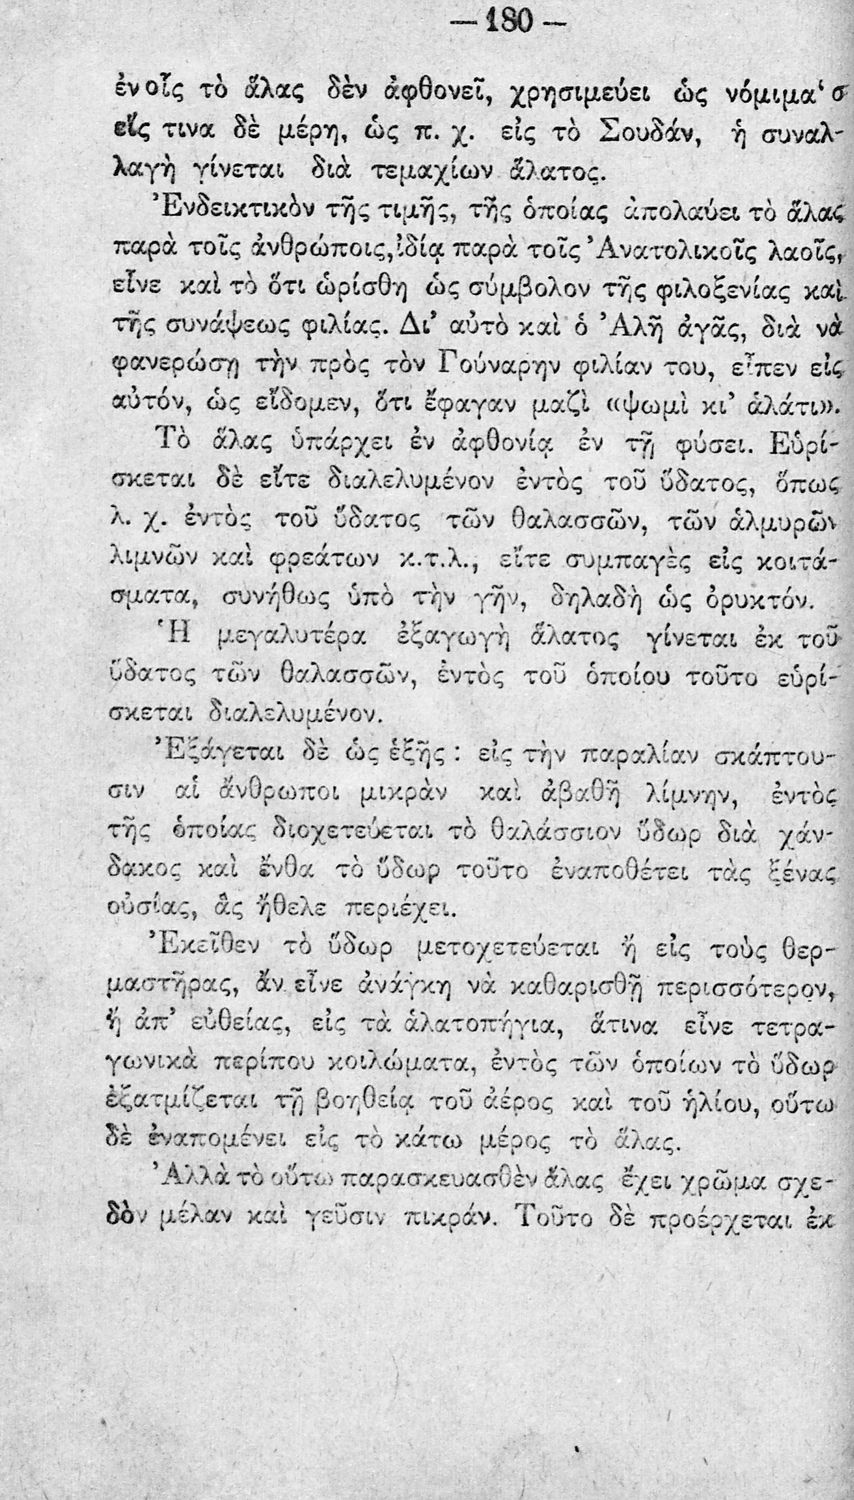 — 180 —
ἐν οἷς τὸ ἅλας δὲν ἀφθονεῖ, χρησιμεύει ὡς νόμιμα‘σ
εἴς τινα δὲ μέρη, ὡς π. χ. εἰς τὸ Σουδάν, ἡ συναλ-
λαγὴ γίνεται διὰ τεμαχίων ἅλατος.
Ἐνδεικτικὸν τῆς τιμῆς, τῆς ὁποίας ἀπολαύει τὸ ἅλας
παρὰ τοῖς ἀνθρώποις, ἰδίᾳ παρὰ τοῖς Ἀνατολικοῖς λαοῖς,
εἶνε καὶ τὸ ὅτι ὡρίσθη ὡς σύμβολον τῆς φιλοξενίας καὶ
τῆς συνάψεως φιλίας. Δι’ αὐτὸ καὶ ὁ Ἀλῆ ἀγᾶς, διὰ νὰ
φανερώσῃ τὴν πρὸς τὸν Γούναρην φιλίαν του, εἶπεν εἰς
αὐτόν, ὡς εἴδομεν, ὅτι ἔφαγαν μαζὶ «ψωμὶ κι’ ἁλάτι».
Τὸ ἅλας ὑπάρχει ἐν ἀφθονίᾳ ἐν τῇ φύσει. Εὑρί-
σκεται δὲ εἴτε διαλελυμένον ἐντὸς τοῦ ὕδατος, ὅπως
λ. χ. ἐντὸς τοῦ ὕδατος τῶν θαλασσῶν, τῶν ἁλμυρῶν
λιμνῶν καὶ φρεάτων κ.τ.λ., εἴτε συμπαγὲς εἰς κοιτά-
σματα, συνήθως ὑπὸ τὴν γῆν, δηλαδὴ ὡς ὀρυκτόν.
Ἡ μεγαλυτέρα ἐξαγωγὴ ἅλατος γίνεται ἐκ τοῦ
ὕδατος τῶν θαλασσῶν, ἐντὸς τοῦ ὁποίου τοῦτο εὑρί-
σκεται διαλελυμένον.
Ἐξάγεται δὲ ὡς ἑξῆς : εἰς τὴν παραλίαν σκάπτου-
σιν αἱ ἄνθρωποι μικρὰν καὶ ἀβαθῆ λίμνην, ἐντὸς
τῆς ὁποίας διοχετεύεται τὸ θαλάσσιον ὕδωρ διὰ χάν-
δακος καὶ ἔνθα τὸ ὕδωρ τοῦτο ἐναποθέτει τὰς ξένας
οὐσίας, ἃς ἤθελε περιέχει.
Ἐκεῖθεν τὸ ὕδωρ μετοχετεύεται ἢ εἰς τοὺς θερ-
μαστῆρας, ἂν εἶνε ἀνάγκη νὰ καθαρισθῇ περισσότερον,
ἢ ἀπ’ εὐθείας, εἰς τὰ ἁλατοπήγια, ἅτινα εἶνε τετρα-
γωνικὰ περίπου κοιλώματα, ἐντὸς τῶν ὁποίων τὸ ὕδωρ
ἐξατμίζεται τῇ βοηθείᾳ τοῦ ἀέρος καὶ τοῦ ἡλίου, οὕτω
δὲ ἐναπομένει εἰς τὸ κάτω μέρος τὸ ἅλας.
Ἀλλὰ τὸ οὕτω παρασκευασθὲν ἅλας ἔχει χρῶμα σχε-
δὸν μέλαν καὶ γεῦσιν πικράν. Τοῦτο δὲ προέρχεται ἐκ